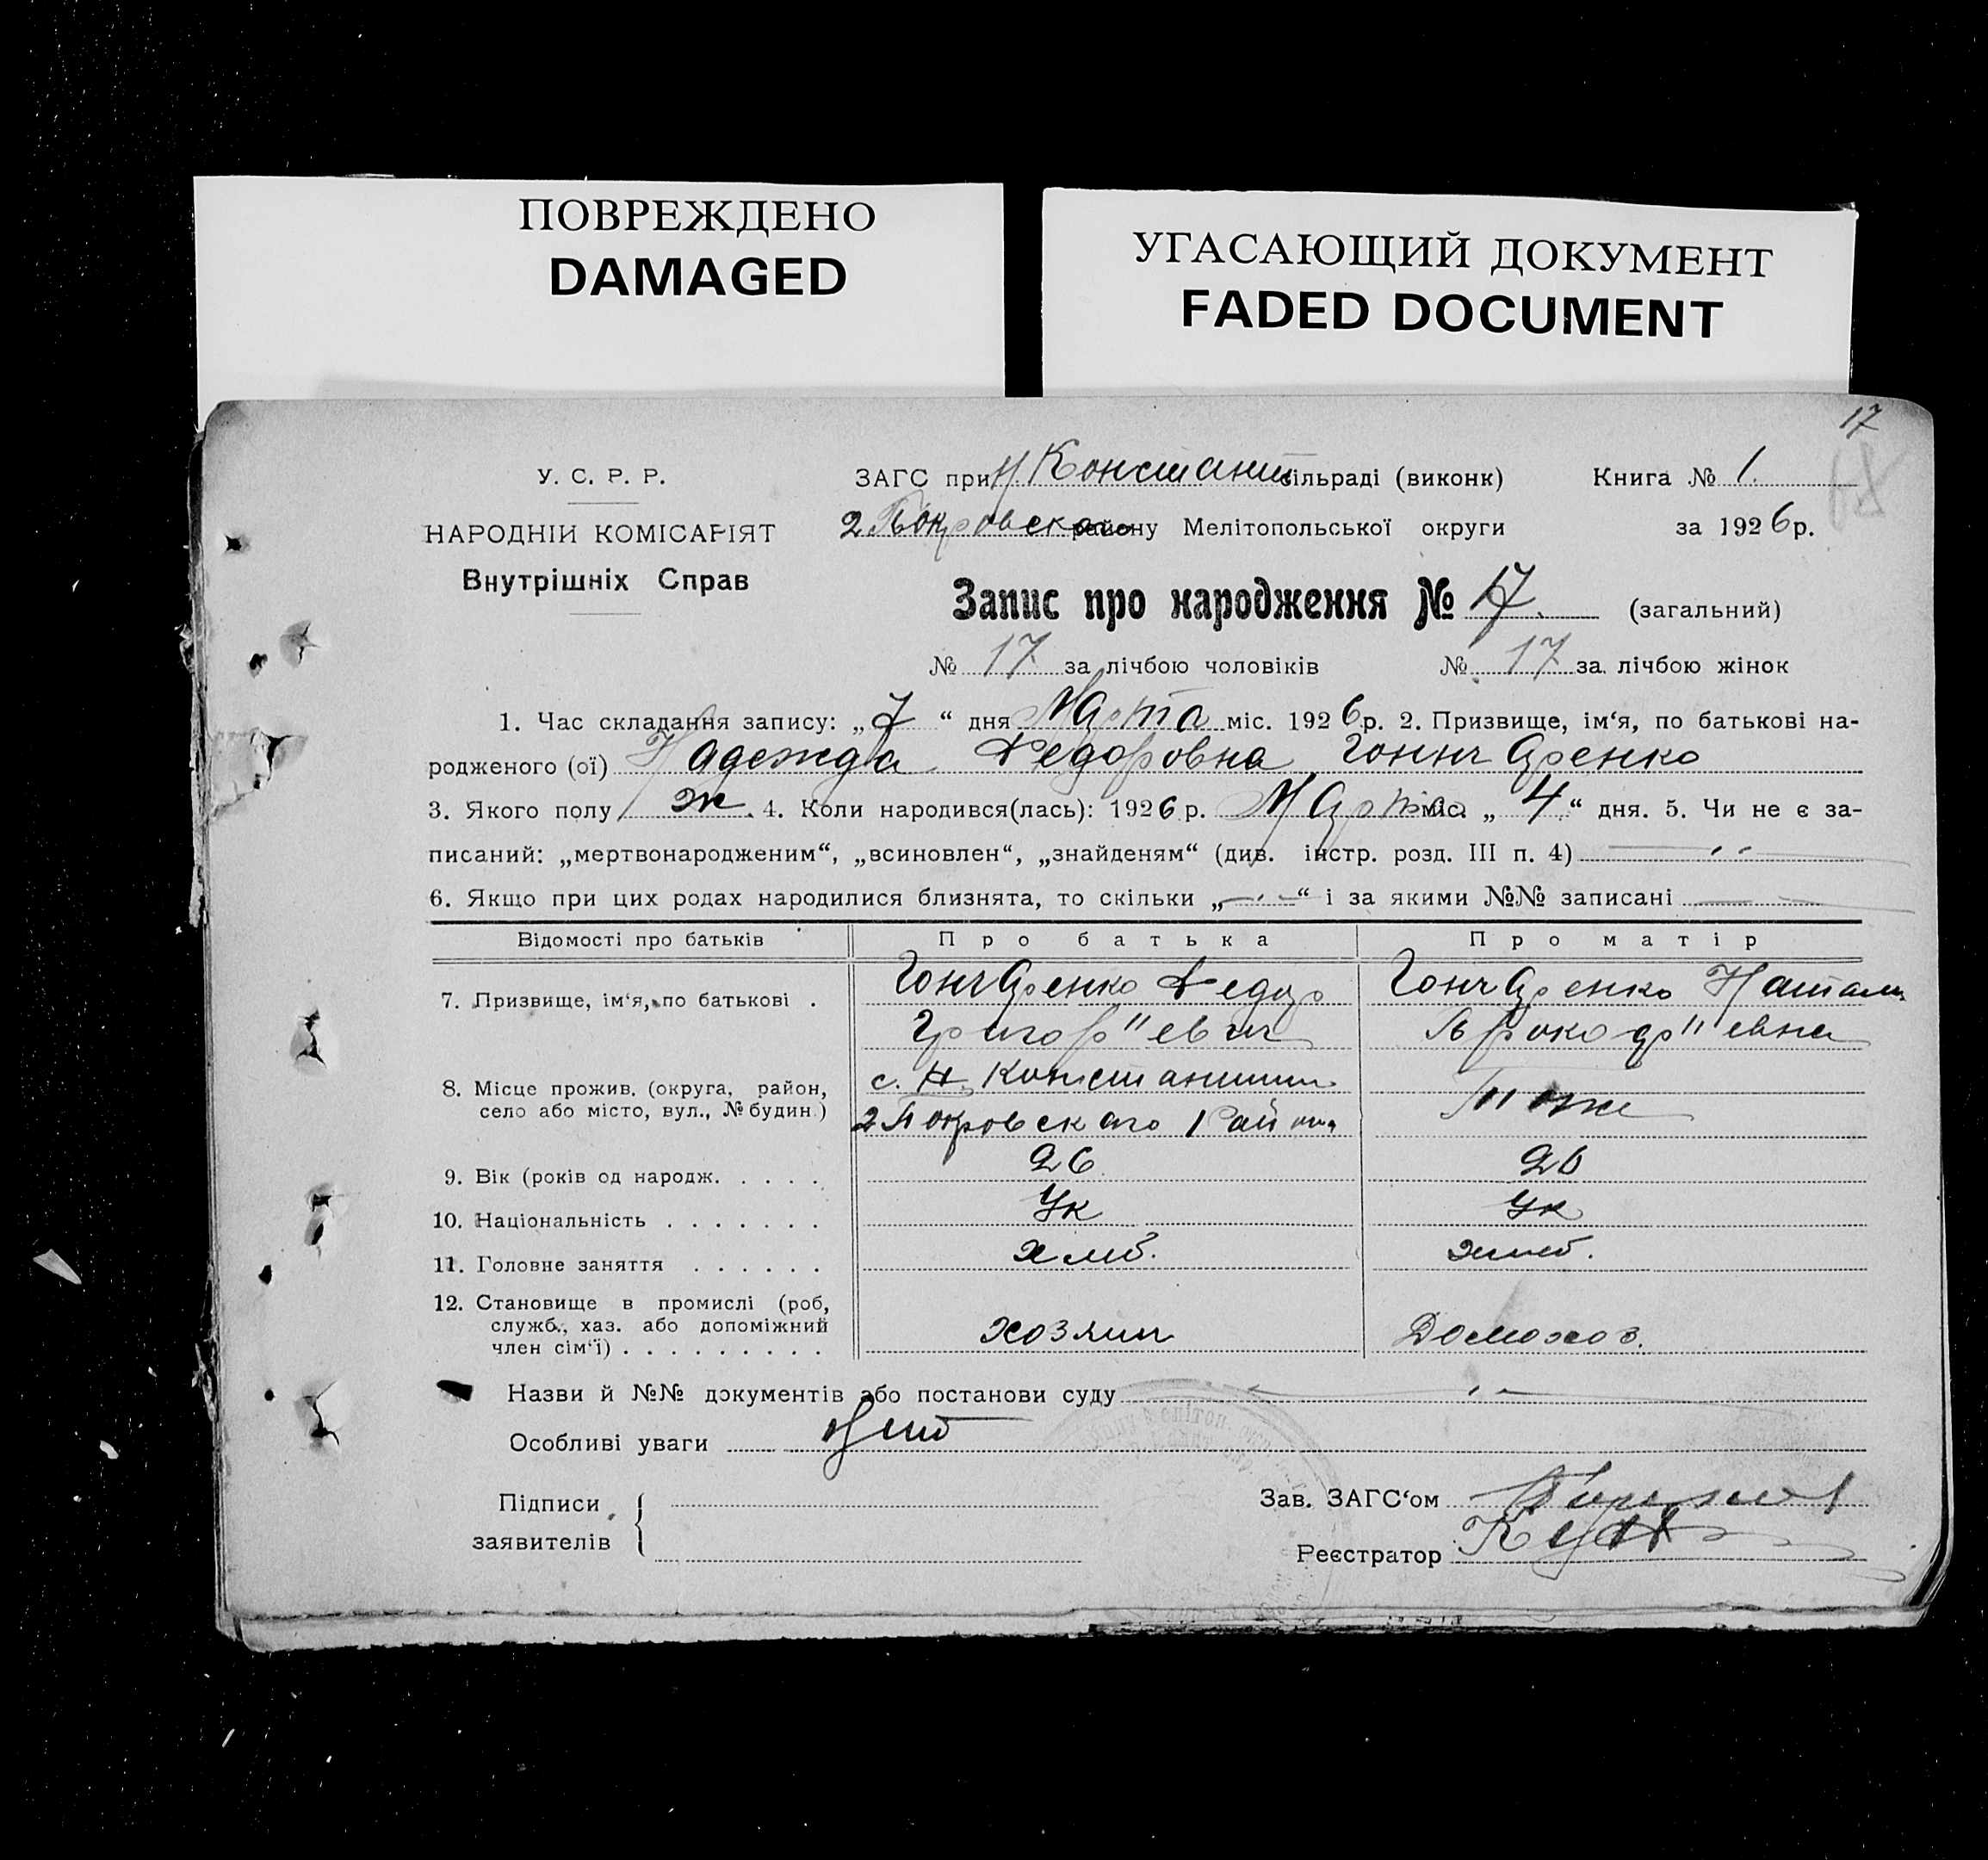 ПОВРЕЖДЕНО
DAMAGED
УГАСАЮЩИЙ ДОКУМЕНТ
FADED DOCUMENT
17
У. С. Р. Р.
НАРОДНІЙ КОМІСАРІЯТ
Внутрішніх Справ
ЗАГС при Н Констант сільраді (виконк)
Книга № 1.
2 Покровского району Мелітопольської округи
за 1926 р.
Запис про народження № 17. (загальний)
№ 17 за лічбою чоловіків № 17 за лічбою жінок
1. Час складання запису: „7“ дня Марта міс. 1926 р. 2. Призвище, ім‘я, по батькові на-
родженого (ої) Надежда Федоровна Гончаренко
3. Якого полу ж. 4. Коли народився(лась): 1926 р. Марта міс. „4“ дня. 5. Чи не є за-
писаний: „мертвонародженим“, „всиновлен“, „знайденям“ (див. інстр. розд. III п. 4)
6. Якщо при цих родах народилися близнята, то скільки „—“ і за якими №№ записані —
Відомості про батьків Про батька Про матір
7. Призвище, ім‘я, по батькові . Гончаренко Федор Гончаренко Натали
Григор"евич Прокофр"евна
8. Місце прожив. (округа, район, село або місто, вул., № будин.) с. Н Константин Тоже
2 Покровского Района
9. Вік (років од народж. . . . . 26 26
10. Національність . . . . . . . Ук Ук
11. Головне заняття . . . . . . хлиб. хлиб.
12. Становище в промислі (роб, служб., хаз. або допоміжний член сім‘ї) . . . . . . . . . хозяин Домохоз.
Назви й №№ документів або постанови суду
Особливі уваги
Підписи заявителів
Зав. ЗАГС‘ом
Реєстратор